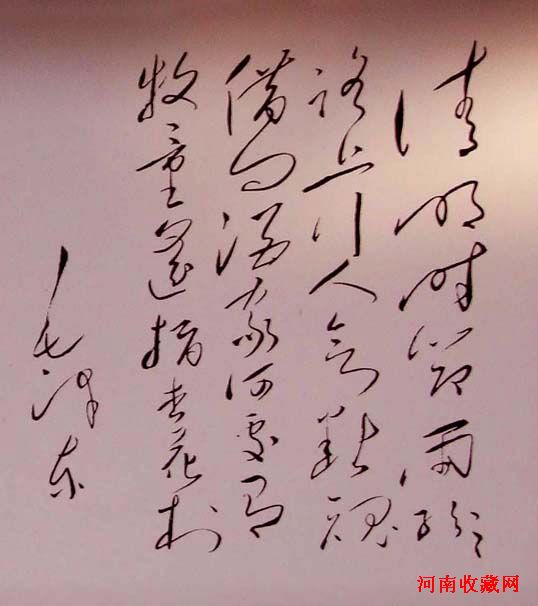 清明时节雨纷纷
路上行人欲断魂
借问酒家何处有
牧童遥指杏花村
毛泽东
河南收藏网